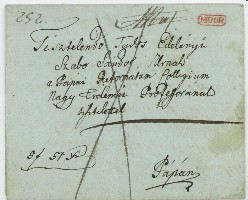 252.
MOOR
Tisztelendő Tudós Edelényi
Szabó Sándor Urnak
a Pápai Reformatum Collegium
Nagy Erdemű Professoranak
tisztelettel
Pápán